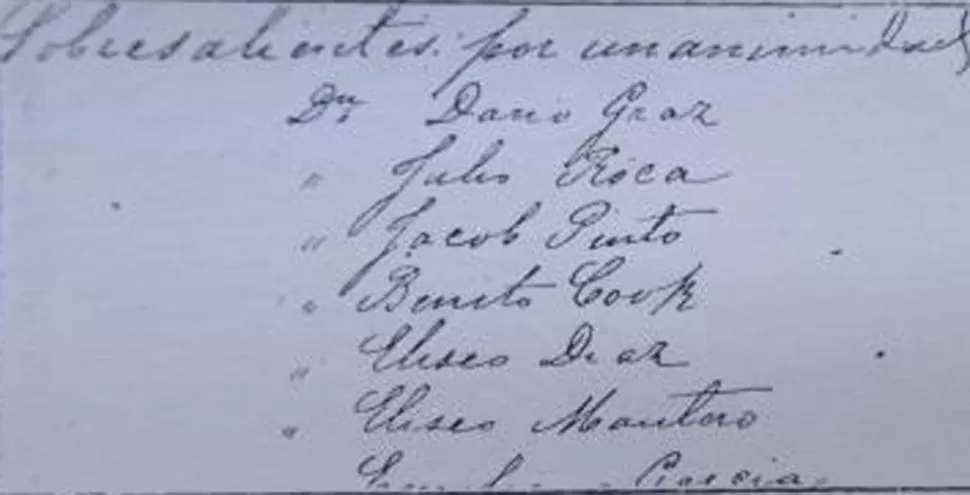 Sobresalientes por unanimidad
Dn. Dario Graz
" Julio Roca
" Jacob Pinto
" Benito Cook
" Eliseo Diaz
" Eliseo Mantero
Garcia